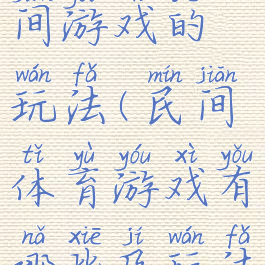 间游戏的
wán fǎ mín jiān
玩法(民间
tǐ yù yóu xì yǒu
体育游戏有
nǎ xiē jí wán fǎ
哪些及玩法